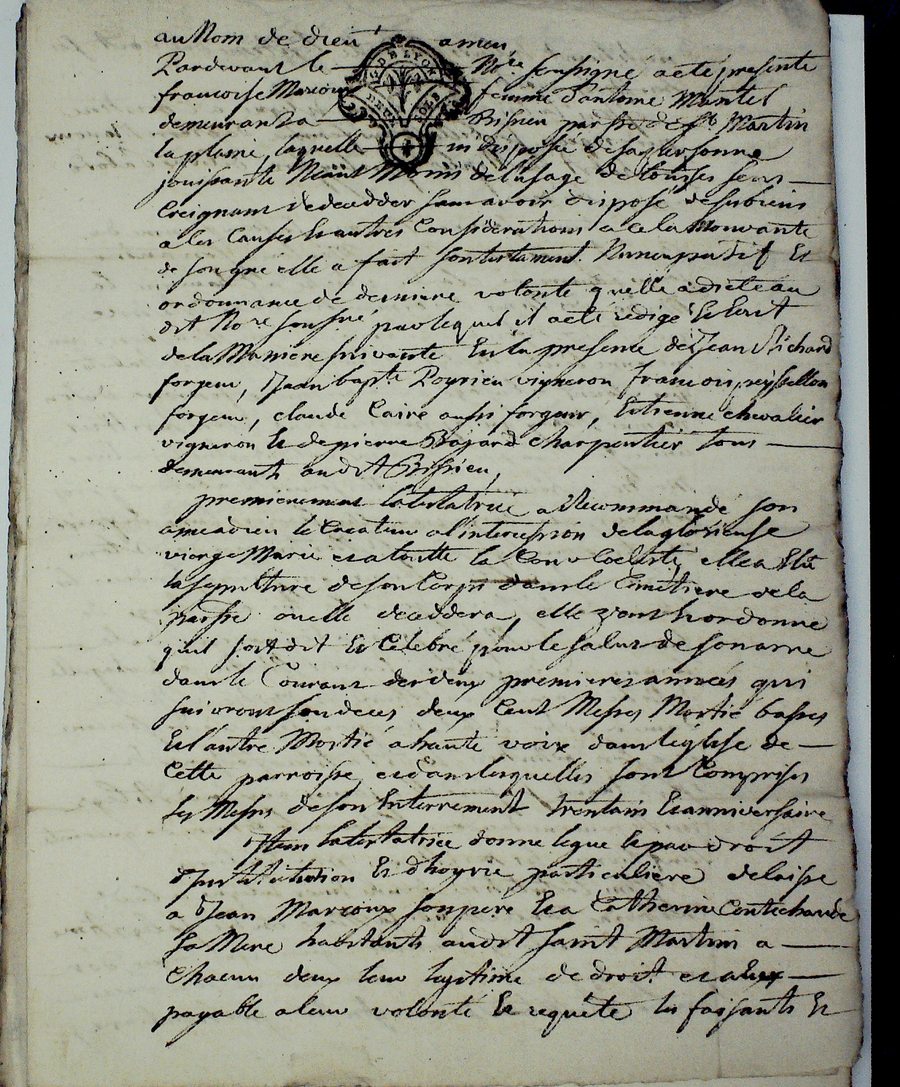 au Nom de dieu amen
Pardevant le Nre soussigné a eté presente
francoise Marcoux femme d'antoine Martel
demeurant a Bissieu parsse de St Martin
la plaine, laquelle in disposée de sa personne
jouissante Neant Moins de l'usage de touttes sens
Creignant de decedder sans avoir disposé de ses biens
a les Causes & autres Considerations a ce la Mouvante
de son gré elle a fait son testament Nuncupatif &
ordonnance de derniere volonté quelle a dicté au
dit Nore soussné par lequel il a eté redigé & Ecrit
de la Maniere suivante En la presence de Jean Richard
forgeur, Jean bapte Poyrieu vigneron francois peyssellon
forgeur, claude Caire aussi forgeur, Estienne chevalier
vigneron & de pierre Bajard charpentier tous
demeurants audit Bissieu,
premierement la testatrice a Recommandé son
ame a dieu le Createur a l'intercession de la glorieuse
vierge Marie et a toutte la Cour Celeste, elle a Elu
la sepulture de son Corps dans le Cimetiere de la
parsse ou elle decedera, elle veut & ordonne
quil soit dit & Celebré pour le salut de son ame
dans le Courant des deux premieres années qui
suivront son deces deux Cent Messes Mortié basses
& l'autre Mortié a haute voix dans l'église de
Cette parroisse, et dans lesquelles sont Comprises
les Messes de son Enterrement trentain & anniversaire
Item la testatrice donne legue & par droit
d'institution & d'hoyrie particuliere delaisse
a Jean Marcoux son pere & a Catherine Contechande
sa Mere habitants audit saint Martin a
Chacun deux leur legitime de droit et a eux
payable a leur volonté & requête les faisants &